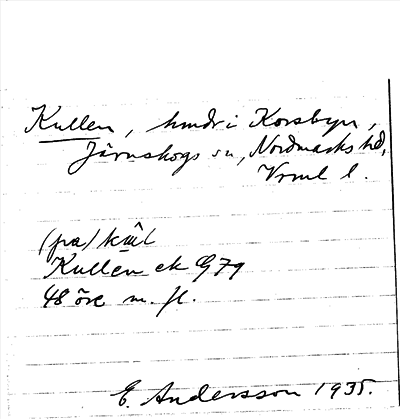 Kullen, hmdr i Korsbyn,
Järnskogs sn, Nordmarks hd,
Vrml l.
(pa) kul
Kullen ek G79
48 öre m. fl.
E. Andersson 1935.